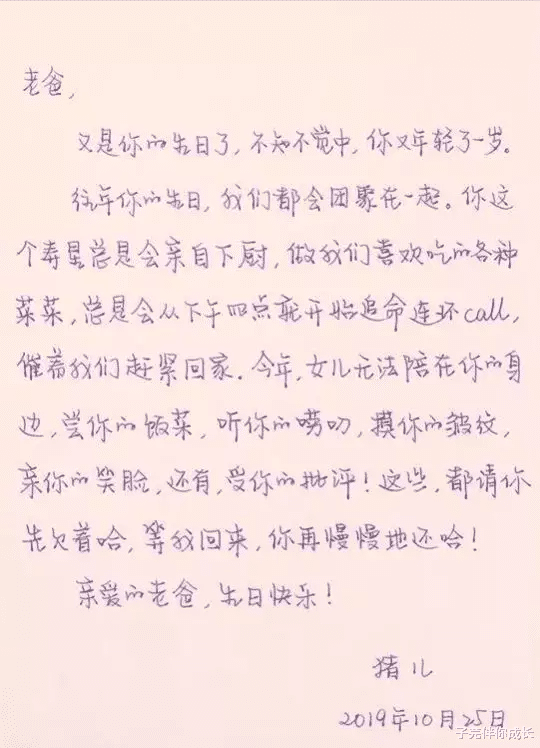 老爸,
又是你的生日了,不知不觉中,你又年轻了一岁。
往年你的生日,我们都会团聚在一起。你这
个寿星总是会亲自下厨,做我们喜欢吃的各种
菜菜,总是会从下午四点就开始追命连环call,
催着我们赶紧回家。今年,女儿无法陪在你的身
边,尝你的饭菜,听你的唠叨,摸你的皱纹,
亲你的笑脸,还有,受你的批评!这些,都请你
先欠着哈,等我回来,你再慢慢地还哈!
亲爱的老爸,生日快乐!
猪儿
2019年10月25日
子尧伴你成长